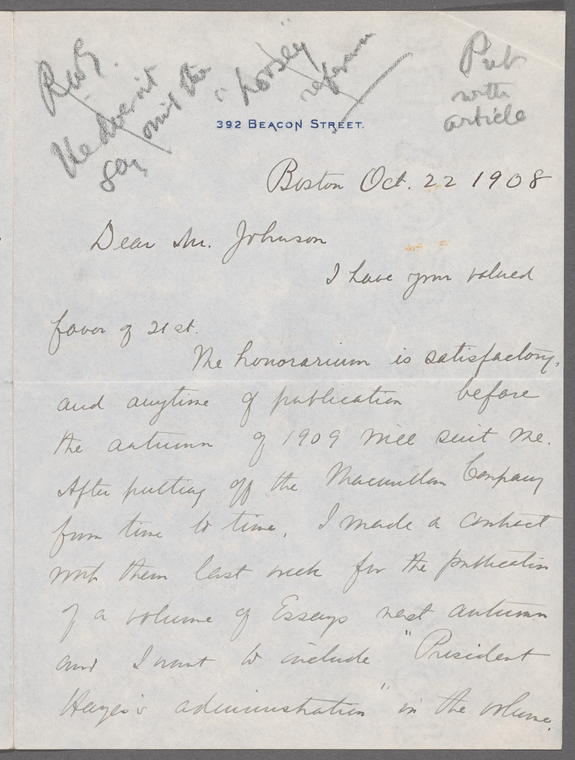 R.W.G.
He doesn't
say omit the
"horsey"
reference
Put
with
article
392 BEACON STREET.
Boston Oct. 22 1908
Dear Mr. Johnson
I have your valued
favor of 21st.
The honorarium is satisfactory,
and anytime of publication before
the autumn of 1909 will suit me.
After putting off the Macmillan Company
from time to time, I made a contract
with them last week for the publication
of a volume of Essays next autumn
and I want to include "President
Hayes's administration" in the volume.